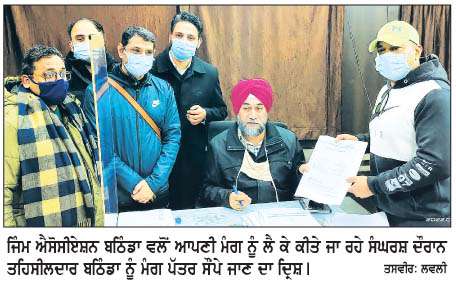 ਜਿੰਮ ਐਸੋਸੀਏਸ਼ਨ ਬਠਿੰਡਾ ਵਲੋਂ ਆਪਣੀ ਮੰਗ ਨੂੰ ਲੈ ਕੇ ਕੀਤੇ ਜਾ ਰਹੇ ਸੰਘਰਸ਼ ਦੌਰਾਨ
ਤਹਿਸੀਲਦਾਰ ਬਠਿੰਡਾ ਨੂੰ ਮੰਗ ਪੱਤਰ ਸੌਂਪੇ ਜਾਣ ਦਾ ਦ੍ਰਿਸ਼। ਤਸਵੀਰ: ਲਵਲੀ